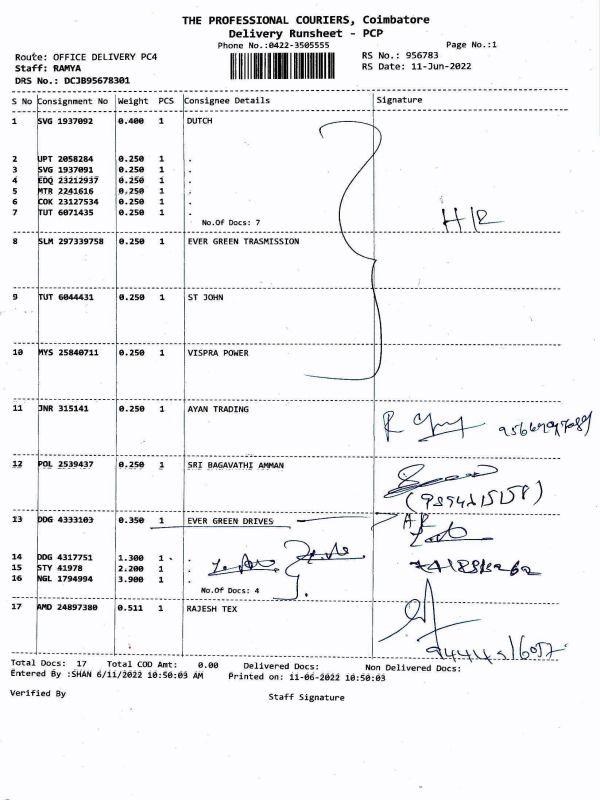 THE PROFESSIONAL COURIERS, Coimbatore
Delivery Runsheet - PCP
Phone No.:0422-3505555 Page No.:1
Route: OFFICE DELIVERY PC4 RS No.: 956783
Staff: RAMYA RS Date: 11-Jun-2022
DRS No.: DCJB95678301
S No Consignment No Weight PCS Consignee Details Signature
1 SVG 1937092 0.400 1 DUTCH
2 UPT 2058284 0.250 1 .
3 SVG 1937091 0.250 1 .
4 EDQ 23212937 0.250 1 .
5 MTR 2241616 0.250 1 .
6 COK 23127534 0.250 1 .
7 TUT 6071435 0.250 1 .
No.Of Docs: 7
H/R
8 SLM 297339758 0.250 1 EVER GREEN TRASMISSION
9 TUT 6044431 0.250 1 ST JOHN
10 MYS 25840711 0.250 1 VISPRA POWER
11 JNR 315141 0.250 1 AYAN TRADING
12 POL 2539437 0.250 1 SRI BAGAVATHI AMMAN
13 DDG 4333103 0.350 1 EVER GREEN DRIVES
14 DDG 4317751 1.300 1 .
15 STY 41978 2.200 1
16 NGL 1794994 3.900 1
No.Of Docs: 4
17 AMD 24897380 0.511 1 RAJESH TEX
Total Docs: 17 Total COD Amt: 0.00 Delivered Docs: Non Delivered Docs:
Entered By :SHAN 6/11/2022 10:50:03 AM Printed on: 11-06-2022 10:50:03
Verified By Staff Signature